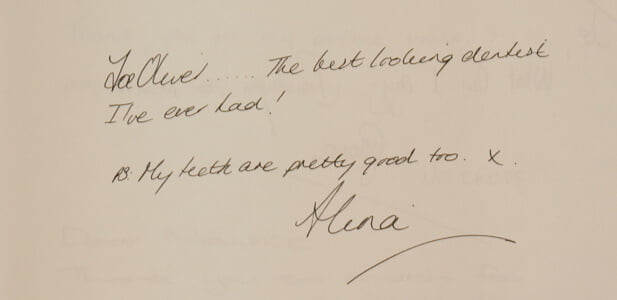 To Oliver...... The best looking dentist
I've ever had!
PS. My teeth are pretty good too. x.
Alena